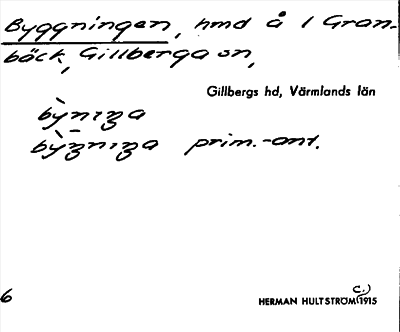 Byggningen, hmd å 1 Gran-
bäck, Gillberga sn,
Gillbergs hd, Värmlands län
bỳnıŋa
bỳg̅nıŋa prim.-ant.
6
HERMAN HULTSTRÖM (c.) 1915